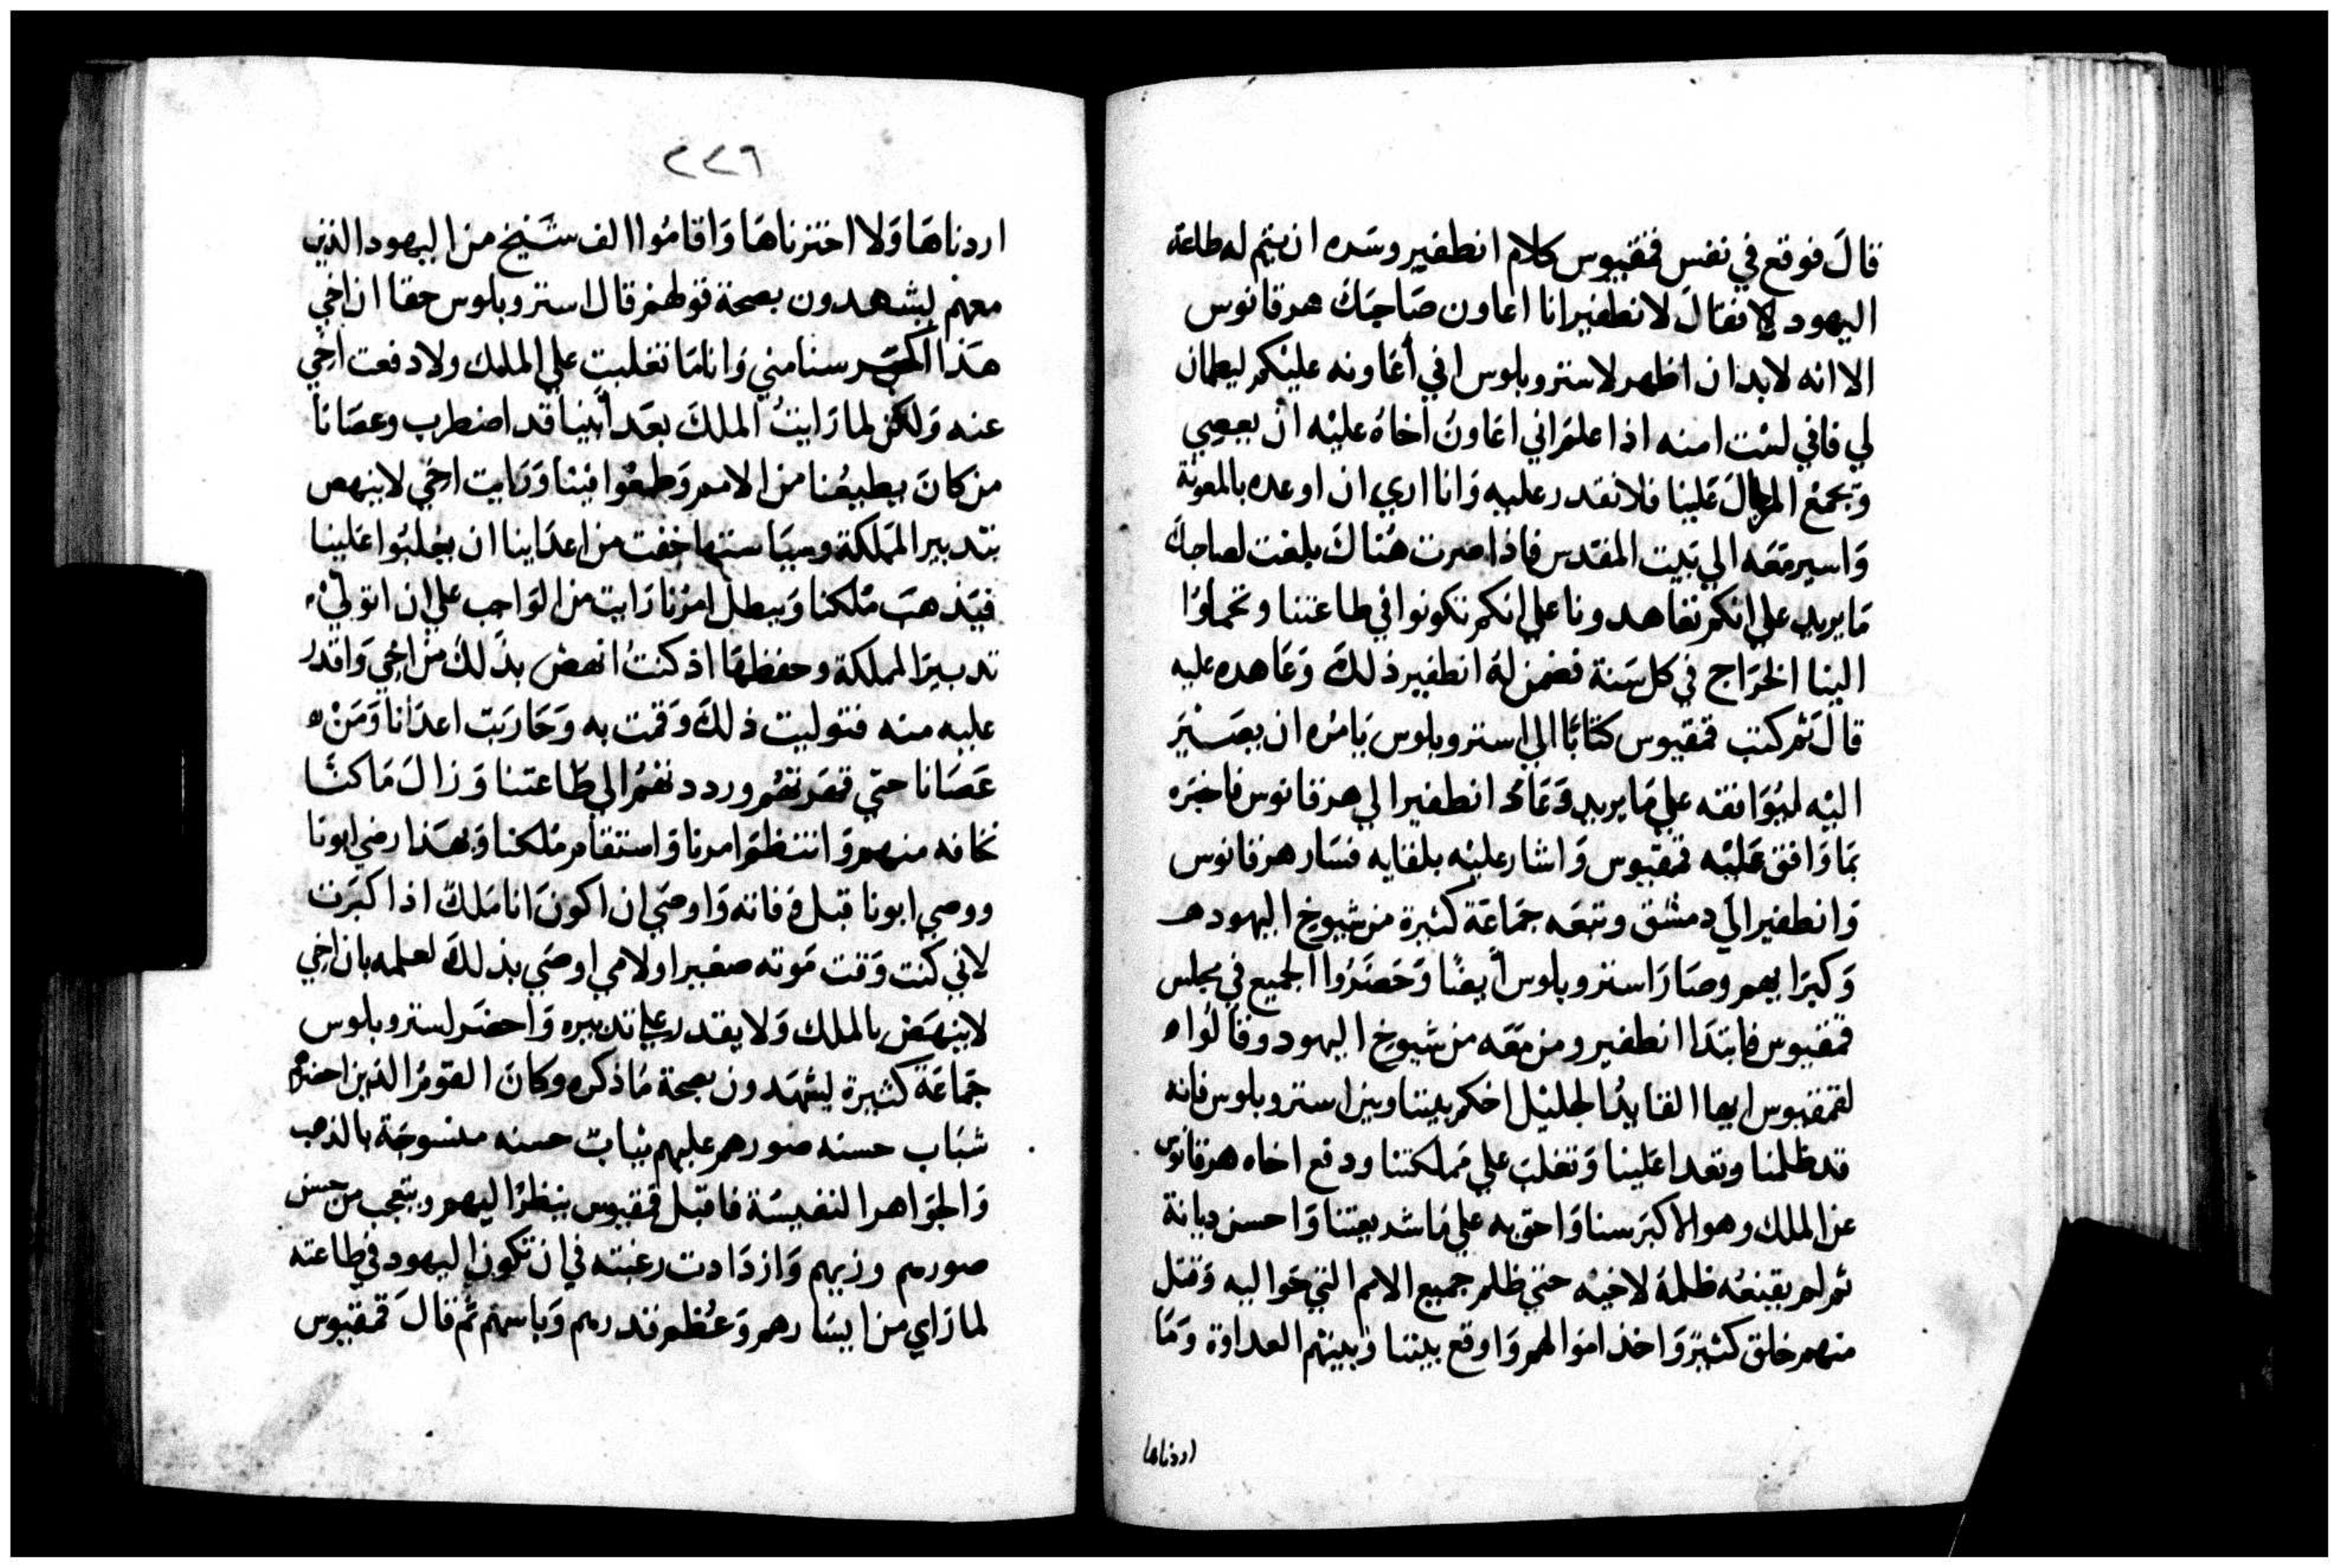 قال فوقع في نفس فمقيوس كلام انطفير وسره ان يتم له طاعة
اليهود لانفقال لانطفير انا اعاون صاحبك هرقانوس
الا انه لابد ان اظهر لاستروبلوس اني أعاونه عليكم ليطمان
لي فاني لست امنه اذا علم اني اعاون اخاه عليه ان يعصي
ويجمع الرجال علينا فلا نقدر عليه وانا اري ان اوعده بالمعونة
واسير معه الي بيت المقدس فاذا صرت هناك بلغت لصاحبك
ما يريد علي انكم تعاهدونا علي انكم تكونوا في طاعتنا وتحملوا
الينا الخراج في كل سنة فضمن له انطفير ذلك وعاهده عليه
قال ثم كتب فمقيوس كتابا الي استروبلوس يامره ان يصير
اليه ليوافقه علي ما يريد وعاد انطفير الي هرقانوس فاخبره
بما وافق عليه فمقيوس واشار عليه بلقايه فسار هرقانوس
وانطفير الي دمشق ومعه جماعة كثيرة من شيوخ اليهود
وكبرايهم وصار استروبلوس أيضًا وحضروا الجميع في مجلس
فمقيوس فابتدا انطفير ومن معه من شيوخ اليهود وقالوا
لفمقيوس ايها القايد الجليل احكم بيننا وبين استروبلوس فانه
قد ظلمنا وتعدا علينا وتغلب علي مملكتنا ودفع اخاه هرقانوس
عن الملك وهو الاكبر سنا واحق به علي ما شريعتنا واحسن ديانة
ثم لم يقنعه ظلمه لاخيه حتي ظلم جميع الامم التي حواليه وقتل
منهم خلق كثير واخذ اموالهم واوقع بيننا وبينهم العداوة وما
اردناها
٢٢٦
اردناها ولا اخترناها واقاموا الف شيخ من اليهود الذين
معهم يشهدون بصحة قولهم قال استروبلوس حقا ان اخي
هذا اكبر سنا مني وانا ما تغلبت علي الملك ولا دفعت اخي
عنه ولكن لما رايت الملك بعد أبينا قد اضطرب وعصانا
من كان يطيعنا من الامم وطمعوا فينا ورايت اخي لا ينهض
بتدبير المملكة وسياستها خفت من اعداينا ان يغلبوا علينا
فيذهب ملكنا ويبطل امرنا رايت من الواجب علي ان اتولي
تدبير المملكة وحفظها اذ كنت انهض بذلك من اخي واقدر
عليه منه فتوليت ذلك وقمت به وحاربت اعدانا ومن
عصانا حتي قهرتهم ورددتهم الي طاعتنا وزال ما كنا
نخافه منهم وانتظم امرنا واستقام ملكنا وبهذا رضي ابونا
ووصي ابونا قبل وفاته واوصي ان اكون انا ملك اذا كبرت
لاني كنت وقت موته صغيرا ولامي اوصي بذلك لعلمه بان اخي
لا ينهض بالملك ولا يقدر علي تدبيره واحضر استروبلوس
جماعة كثيرة يشهدون بصحة ما ذكره وكان القوم الذين احضرهم
شباب حسنه صورهم عليهم ثياب حسنه منسوجة بالذهب
والجواهر النفيسة فاقبل فمقيوس ينظر اليهم ويتعجب من حسن
صورهم وزيهم وازدادت رغبته في ان تكون اليهود في طاعته
لما راي من ايسارهم وعظم قدرهم وباسهم ثم قال فمقيوس